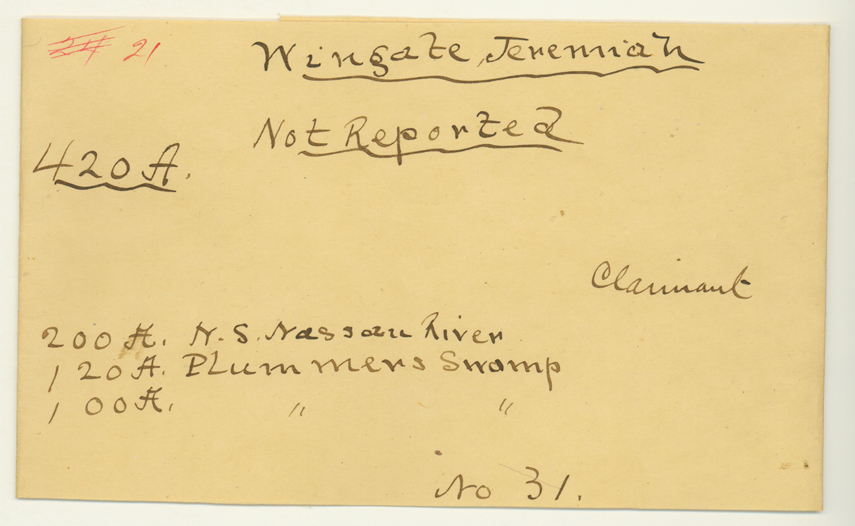 21
Wingate, Jeremiah
Not Reported
420 A.
Claimant
200 A. N. S. Nassau River
120 A. Plummers Swamp
100 A. " "
No 31.